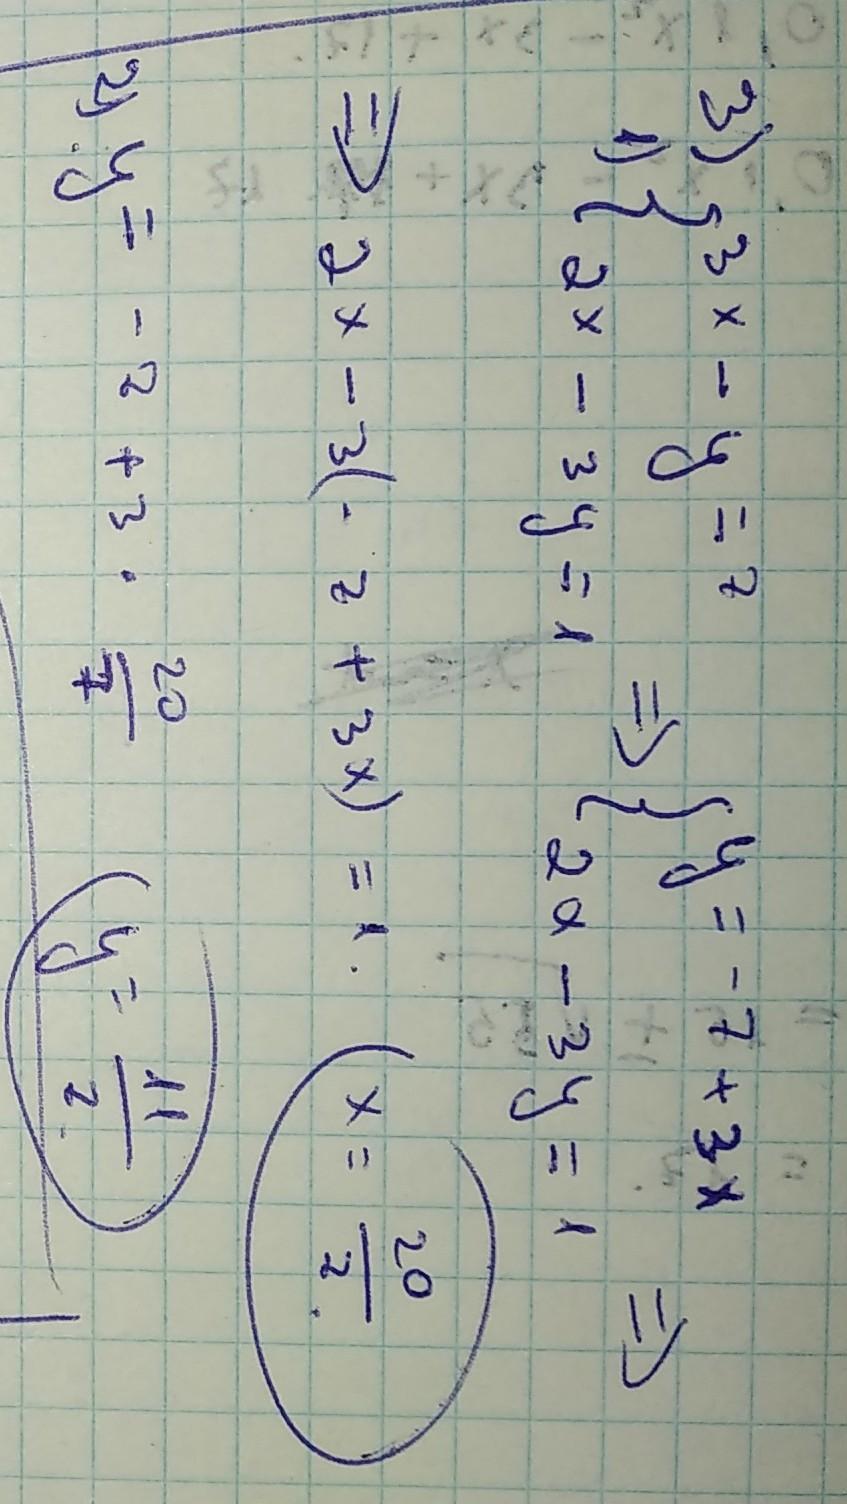 3)
1) { 3x - y = 7
2x - 3y = 1 => { y = -7 + 3x
2x - 3y = 1 =>
=> 2x - 3(-7 + 3x) = 1. x = 20/7.
2) y = -7 + 3 · 20/7 y = 11/7.